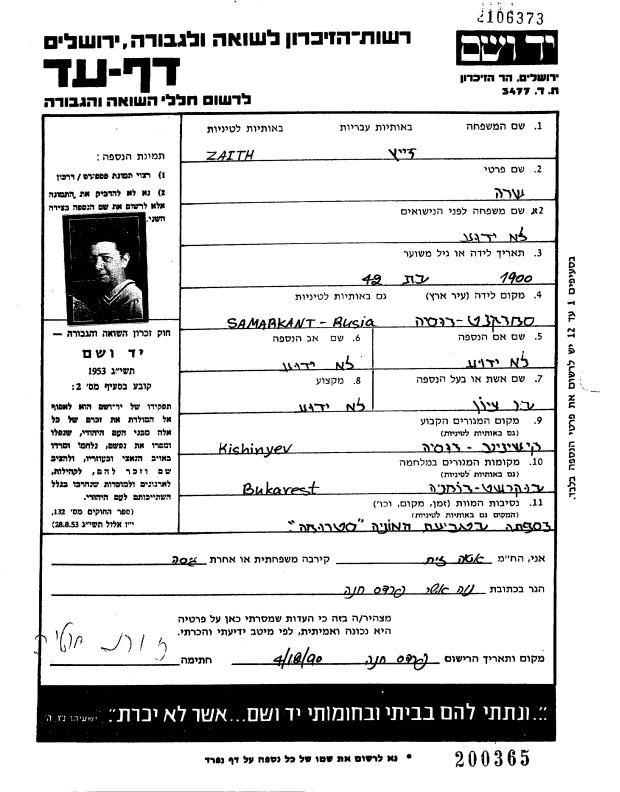 2106373
רשות-הזיכרון לשואה ולגבורה, ירושלים
יד ושם
דף-עד
ירושלים, הר הזיכרון
לרשום חללי השואה והגבורה
ת. ד. 3477
1. שם המשפחה באותיות עבריות באותיות לטיניות
ZAITH
2. שם פרטי
שרה
2א. שם משפחה לפני הנישואים
לא ידוע
3. תאריך לידה או גיל משוער
1900 בת 42
4. מקום לידה (עיר ארץ) גם באותיות לטיניות
סמרקנט-רוסיה SAMARKANT-Rusia
5. שם אם הנספה 6. שם אב הנספה
לא ידוע לא ידוע
7. שם אשת או בעל הנספה 8. מקצוע
בן ציון לא ידוע
9. מקום המגורים הקבוע
(גם באותיות לטיניות)
קישינייב-רוסיה Kishinyev
10. מקומות המגורים במלחמה
(גם באותיות לטיניות)
בוקרשט-רומניה Bukarest
11. נסיבות המוות (זמן, מקום, וכו')
(המקום גם באותיות לטיניות)
נספתה בטביעת האוניה "סטרומה".
תמונת הנספה:
1) רצוי תמונת פספורט / דרכון
2) נא לא להדביק את התמונה
אלא לרשום את שם הנספה בצידה
השני.
חוק זכרון השואה והגבורה —
יד ושם
תשי"ג 1953
קובע בסעיף מס' 2:
תפקידו של יד-ושם הוא לאסוף
אל המולדת את זכרם של כל
אלה מבני העם היהודי, שנפלו
ומסרו את נפשם, נלחמו ומרדו
באויב הנאצי ובעוזריו, ולהציב
שם וזכר להם, לקהילות,
לארגונים ולמוסדות שנחרבו בגלל
השתייכותם לעם היהודי.
(ספר החוקים מס' 132,
י"ז אלול תשי"ג 28.8.53)
בסעיפים 1 עד 12 יש לרשום את פרטי הנספה בלבד.
אני, הח"מ קירבה משפחתית או אחרת גיסה
הגר בכתובת נוה אשר פרדס חנה
מצהיר/ה בזה כי העדות שמסרתי כאן על פרטיה
היא נכונה ואמיתית, לפי מיטב ידיעתי והכרתי.
מקום ותאריך הרישום פרדס חנה 4/18/90 חתימה
"...ונתתי להם בביתי ובחומותי יד ושם...אשר לא יכרת". ישעיהו נ"ו, ה'
* נא לרשום את שמו של כל נספה על דף נפרד
200365